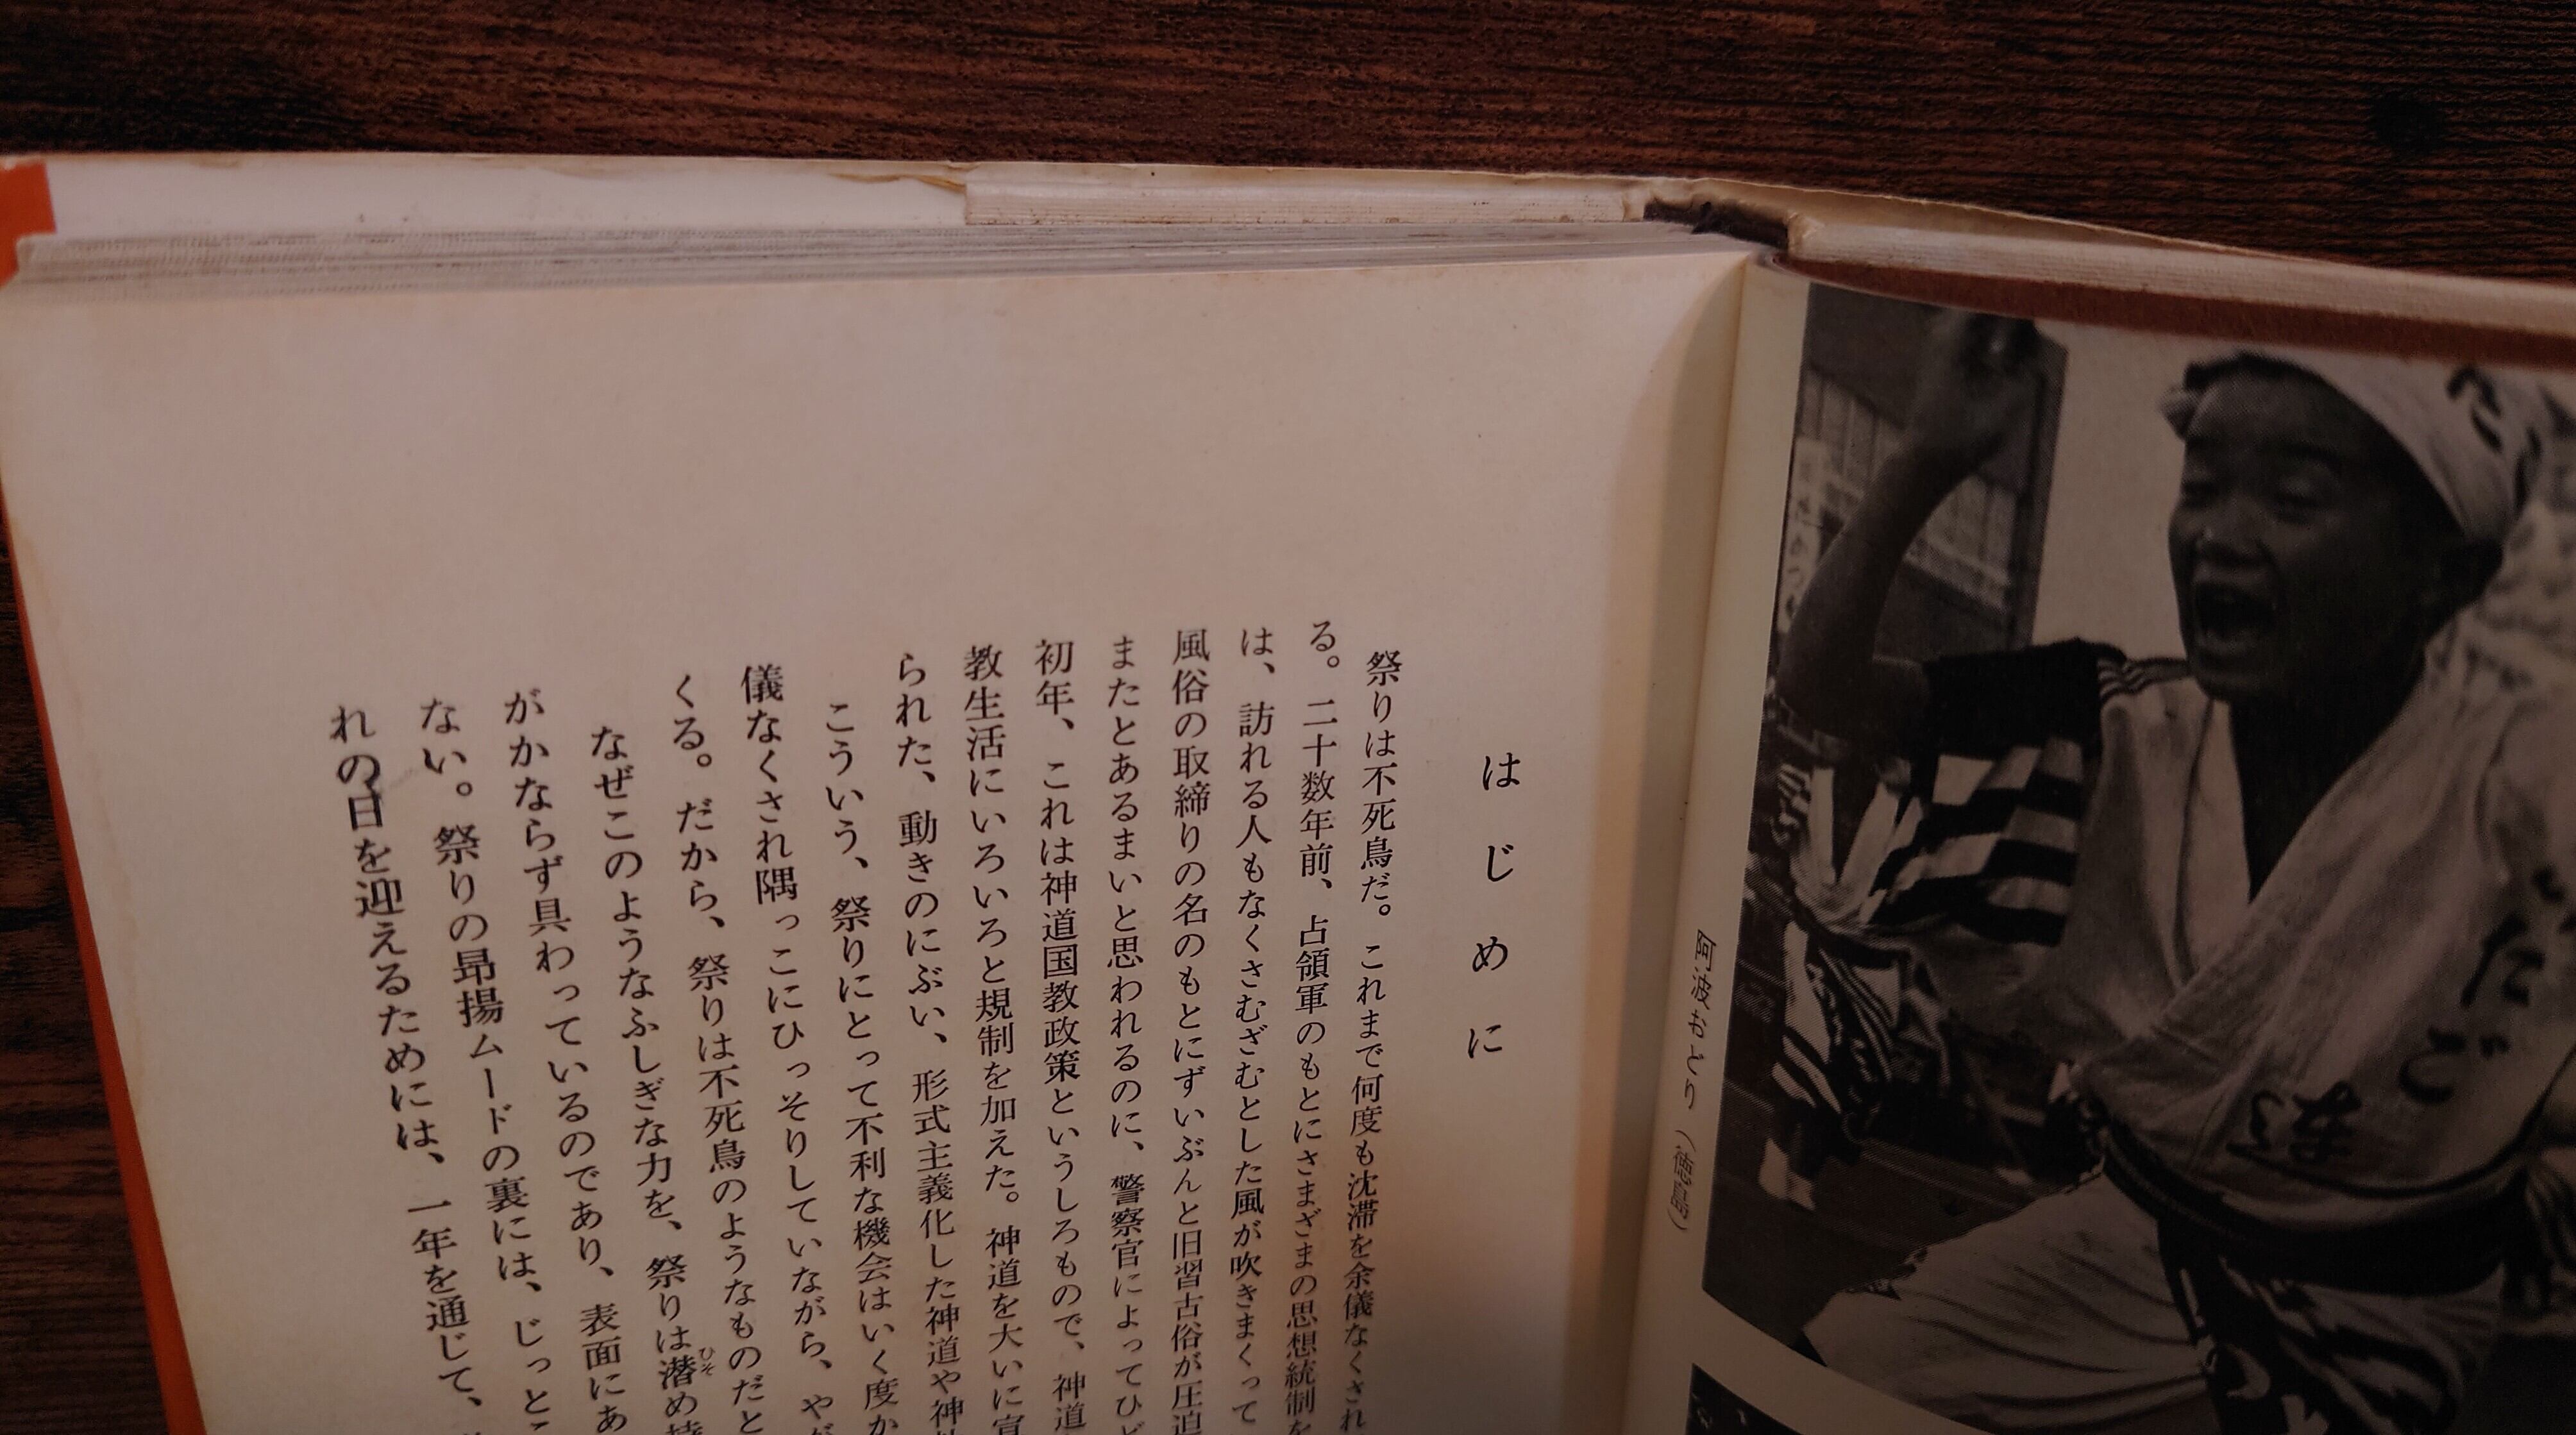 阿波おとり（徳島）
はじめに
祭りは不死鳥だ。これまで何度も沈滞を余儀なくされ
る。二十数年前、占領軍のもとにさまざまの思想統制を
は、訪れる人もなくさむざむとした風が吹きまくって
風俗の取締りの名のもとにずいぶんと旧習古俗が圧迫
またとあるまいと思われるのに、警察官によってひど
初年、これは神道国教政策というしろもので、神道
教生活にいろいろと規制を加えた。神道を大いに宣
られた、動きのにぶい、形式主義化した神道や神
こういう、祭りにとって不利な機会はいく度か
儀なくされ隅っこにひっそりしていながら、やが
くる。だから、祭りは不死鳥のようなものだと
なぜこのようなふしぎな力を、祭りは潜め持
がかならず具わっているのであり、表面にあ
ない。祭りの昂揚ムードの裏には、じっとこ
れの日を迎えるためには、一年を通じて、